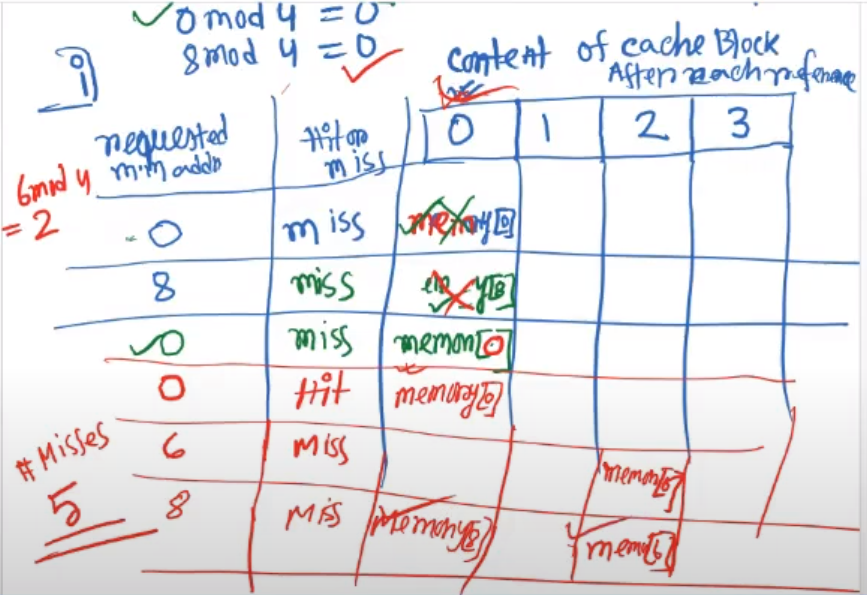 ✓ 0 mod 4 = 0
8 mod 4 = 0 ✓
i)
content of cache Block
After each reference
requested m.m addr
Hit or miss
0 1 2 3
6 mod 4
= 2
0 miss memory[0]
8 miss y[8]
✓0 miss memory[0]
0 Hit memory[0]
6 Miss memory[6]
8 Miss memory[8] memory[6]
# Misses
5